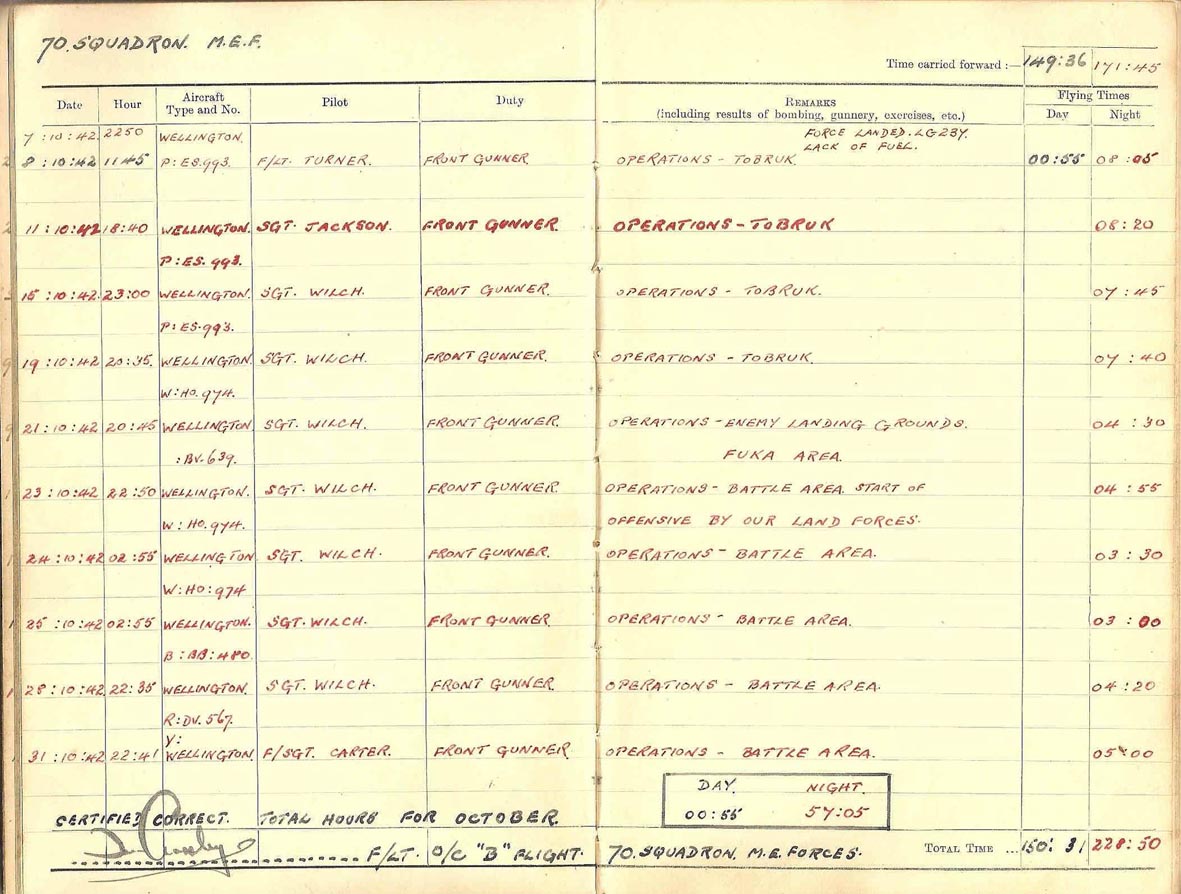 70. SQUADRON. M.E.F.
Time carried forward :— 149:36 171:45
Date Hour Aircraft Type and No. Pilot Duty REMARKS (including results of bombing, gunnery, exercises, etc.) Flying Times Day Night
7:10:42 2250 WELLINGTON. FORCE LANDED. LG237.
LACK OF FUEL.
8:10:42 1145 P:ES.993. F/LT. TURNER. FRONT GUNNER OPERATIONS - TOBRUK. 00:55 08:05
11:10:42 18:40 WELLINGTON. SGT. JACKSON. FRONT GUNNER. OPERATIONS - TOBRUK 08:20
P:ES.993.
15:10:42. 23:00 WELLINGTON. SGT. WILCH. FRONT GUNNER. OPERATIONS - TOBRUK. 07:45
P:ES.993.
19:10:42 20:35. WELLINGTON. SGT. WILCH. FRONT GUNNER. OPERATIONS - TOBRUK. 07:40
W:HO.974.
21:10:42 20:45 WELLINGTON SGT. WILCH. FRONT GUNNER. OPERATIONS - ENEMY LANDING GROUNDS. 04:30
:BV.639. FUKA AREA.
23:10:42 22:50 WELLINGTON. SGT. WILCH. FRONT GUNNER OPERATIONS - BATTLE AREA. START OF 04:55
W:HO.974. OFFENSIVE BY OUR LAND FORCES.
24:10:42 02:55 WELLINGTON SGT. WILCH. FRONT GUNNER. OPERATIONS - BATTLE AREA. 03:30
W:HO:974
25:10:42 02:55 WELLINGTON. SGT. WILCH. FRONT GUNNER OPERATIONS - BATTLE AREA. 03:00
B:BB:480.
28:10:42 22:35 WELLINGTON. SGT. WILCH. FRONT GUNNER OPERATIONS - BATTLE AREA. 04:20
R:DV.567.
Y:
31:10:42 22:41 WELLINGTON. F/SGT. CARTER. FRONT GUNNER OPERATIONS - BATTLE AREA. 05:00
DAY. NIGHT.
00:55 57:05
CERTIFIED CORRECT. TOTAL HOURS FOR OCTOBER.
F/LT. O/C "B" FLIGHT. 70. SQUADRON. M.E. FORCES. TOTAL TIME ... 150:31 228:50